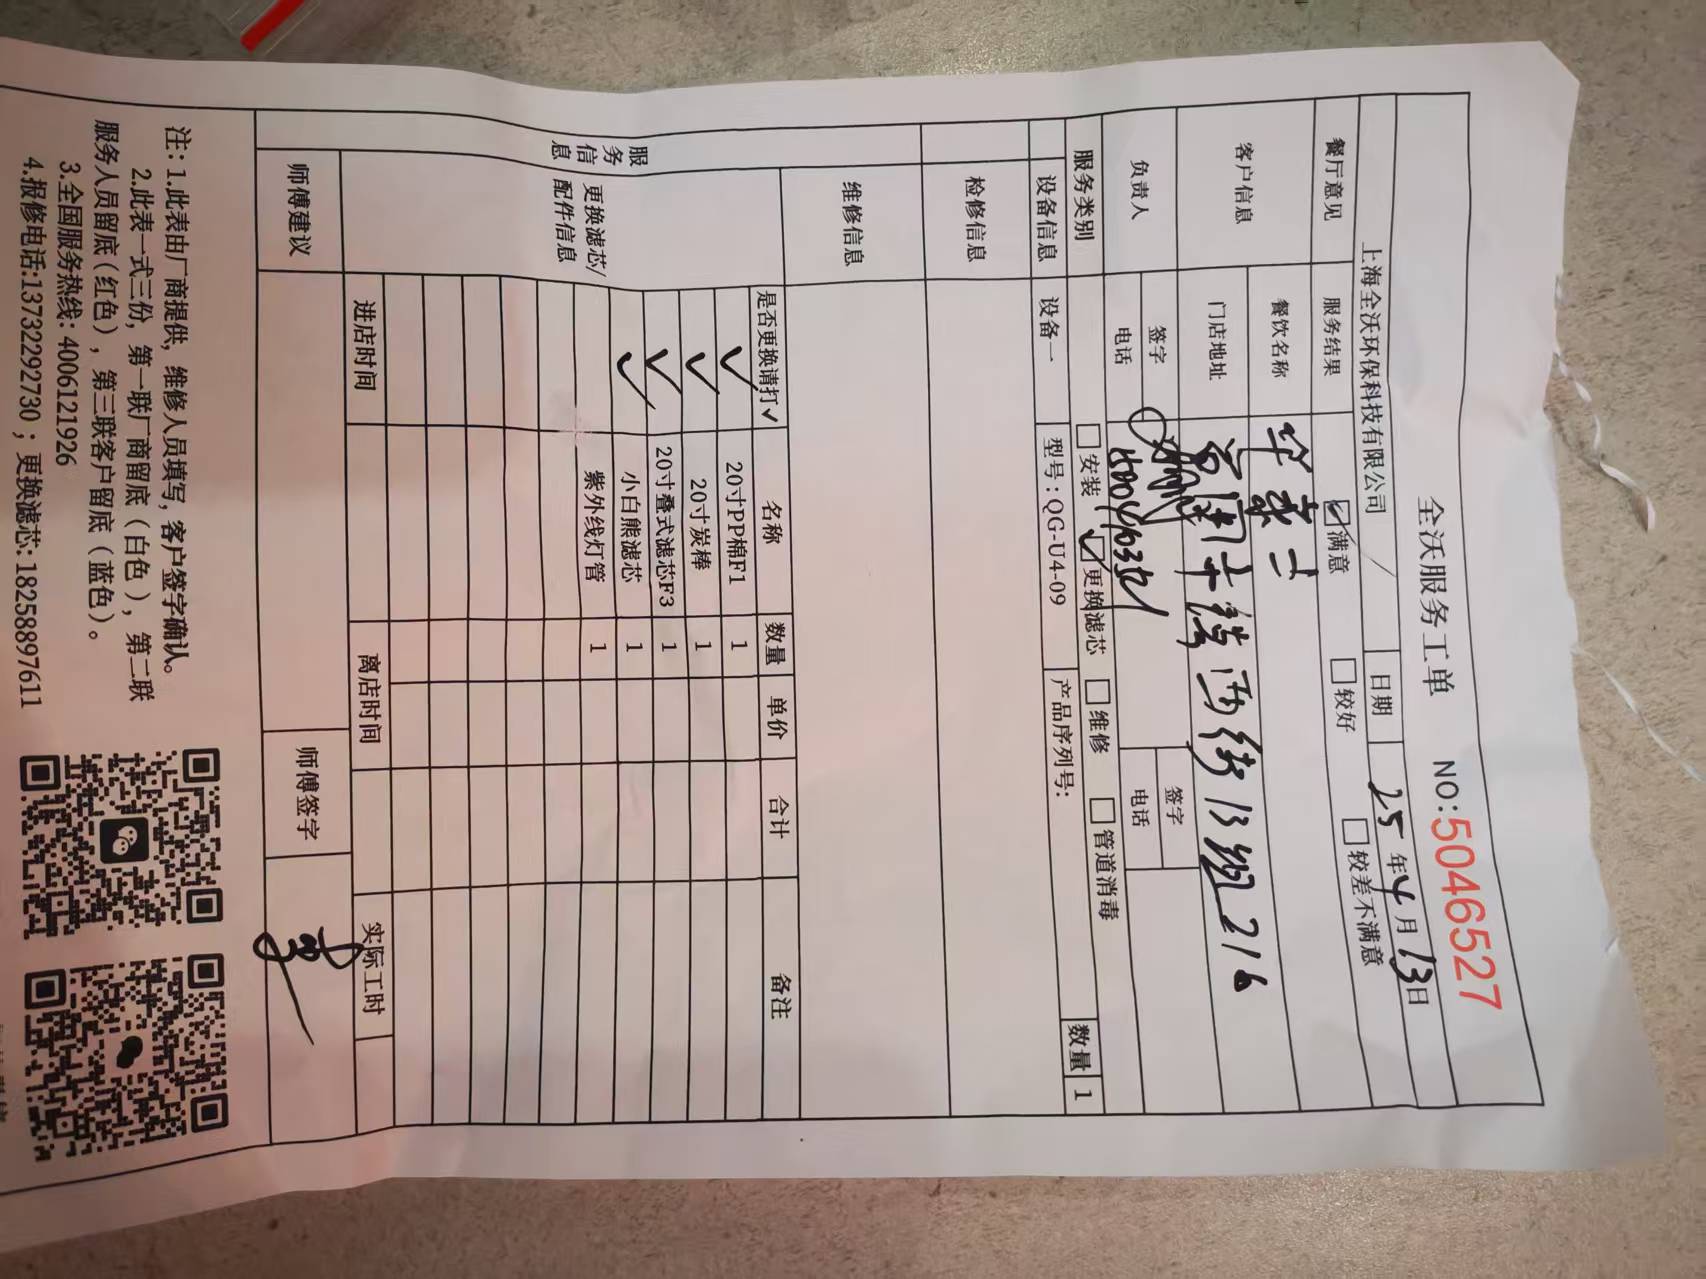 全沃服务工单 NO:5046527
上海全沃环保科技有限公司 日期 25年4月13日
餐厅意见 服务结果 ☑满意 □较好 □较差不满意
客户信息 餐饮名称 华莱士
门店地址 西街13 216
负责人 签字 签字
电话 电话
服务类别 □安装 ☑更换滤芯 □维修 □管道消毒
设备信息 设备一 型号:QG-U4-09 产品序列号: 数量 1
检修信息
服务信息
维修信息
更换滤芯/配件信息
是否更换请打✓ 名称 数量 单价 合计 备注
✓ 20寸PP棉F1 1
✓ 20寸炭棒 1
✓ 20寸叠式滤芯F3 1
✓ 小白熊滤芯 1
紫外线灯管 1
进店时间 离店时间 实际工时
师傅建议 师傅签字
注:1.此表由厂商提供,维修人员填写,客户签字确认。
2.此表一式三份,第一联厂商留底(白色),第二联
服务人员留底(红色),第三联客户留底(蓝色)。
3.全国服务热线:4006121926
4.报修电话:13732292730;更换滤芯:18258897611